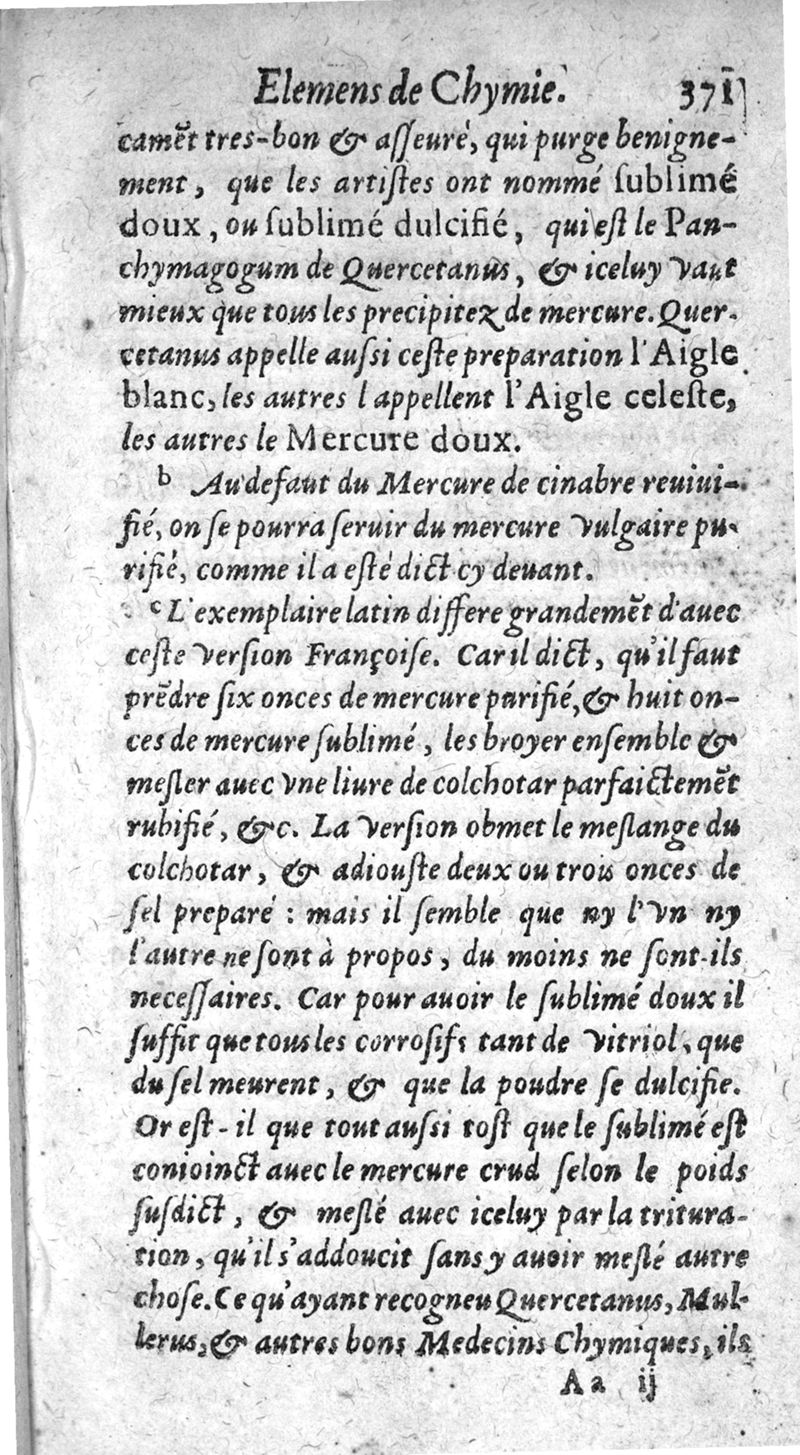 Elemens de Chymie. 371
camēt tres-bon & aſſeuré, qui purge benigne-
ment, que les artiſtes ont nommé ſublimé
doux, ou ſublimé dulcifié, qui eſt le Pan-
chymagogum de Quercetanus, & iceluy vaut
mieux que tous les precipitez de mercure. Quer-
cetanus appelle auſsi ceſte preparation l'Aigle
blanc, les autres l appellent l'Aigle celeſte,
les autres le Mercure doux.
b Au defaut du Mercure de cinabre reuiui-
fié, on ſe pourra ſeruir du mercure vulgaire pu-
rifié, comme il a eſté dict cy deuant.
c L'exemplaire latin differe grandemēt d'auec
ceſte verſion Françoiſe. Car il dict, qu'il faut
prēdre ſix onces de mercure purifié, & huit on-
ces de mercure ſublimé, les broyer enſemble &
meſler auec vne liure de colchotar parfaictemēt
rubifié, &c. La verſion obmet le meſlange du
colchotar, & adiouſte deux ou trois onces de
ſel preparé : mais il ſemble que ny l'vn ny
l'autre ne ſont à propos, du moins ne ſont-ils
neceſſaires. Car pour auoir le ſublimé doux il
ſuffit que tous les corroſifs tant de vitriol, que
du ſel meurent, & que la poudre ſe dulcifie.
Or eſt-il que tout auſsi toſt que le ſublimé eſt
conioinct auec le mercure crud ſelon le poids
ſuſdict, & meſlé auec iceluy par la tritura-
tion, qu'il s'addoucit ſans y auoir meſlé autre
choſe. Ce qu'ayant recogneu Quercetanus, Mul-
lerus, & autres bons Medecins Chymiques, ils
Aa ij